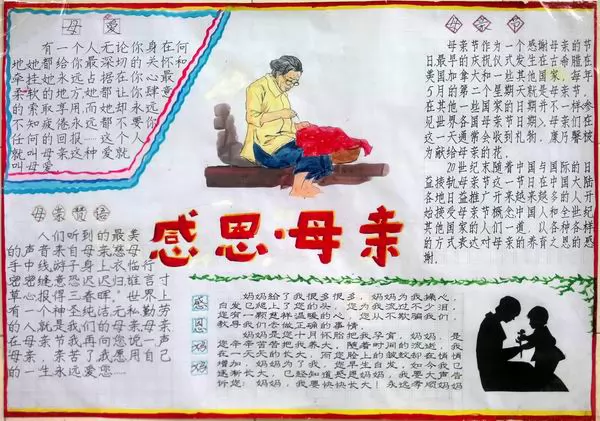 母 爱
有一个人无论你身在何
地她都给你最深切的关怀和
牵挂她永远占据在你心最
柔软的地方她都让你肆意
的索取享用而她却永远
不知疲倦永远都不要你
任何的回报……这个人
就叫母亲这种爱就
叫母爱
母亲节
母亲节作为一个感谢母亲的节
日最早的庆祝仪式发生在古希腊在
美国加拿大和一些其他国家,每年
5月的第二个星期天就是母亲节,
在其他一些国家的日期并不一样参
见世界各国母亲节日期>.母亲们在
这一天通常会收到礼物,康乃馨被
为献给母亲的花.
20世纪末随着中国与国际的日
益接轨母亲节这一节日在中国大陆
各地日益推广开来越来越多的人开
始接受母亲节概念中国人和全世纪
其他国家的人们一道,以各种各样
的方式来达对母亲的养育之恩的感
谢.
感恩·母亲
母亲赞语
人们听到的最美
的声音来自母亲慈母
手中线游子身上衣临行
密密缝意恐迟迟归谁言寸
草心报得三春晖.世界上
有一个神圣纯洁无私勤劳
的人就是我们的母亲母亲
在母亲节我再向您说一声
母亲,亲苦了我愿用自己
的一生永远爱您……
感
因
妈妈给了我很多很多,妈妈为我操心,
白发已经上了您的头,您为我流过不少泪,
您有一颗慈祥温暖的心,您从不欺骗我们,
教导我们去做正确的事情.
妈妈是您十月怀胎把我孕育,妈妈,是
您辛辛苦苦把我养大,随着时间的流逝,我
在一天天的长大,而您脸上的皱纹却在悄悄
增加,妈妈为了我,您早生白发,如今我已
逐渐长大,已经知道感恩妈妈,我要大声告
诉您:妈妈,我要快快长大!永远孝顺妈妈